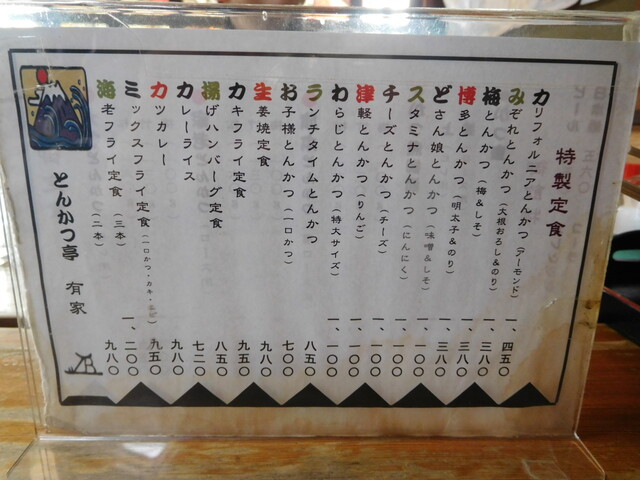 特製定食
カリフォルニアとんかつ（アーモンド） 一、四五〇
みぞれとんかつ（大根おろし&のり） 一、三八〇
梅とんかつ（梅&しそ） 一、三八〇
博多とんかつ（明太子&のり） 一、三八〇
どさん娘とんかつ（味噌&しそ） 一、一〇〇
スタミナとんかつ（にんにく） 一、一〇〇
チーズとんかつ（チーズ） 一、一〇〇
津軽とんかつ（りんご） 一、一〇〇
わらじとんかつ（特大サイズ） 一、一〇〇
ランチタイムとんかつ 八五〇
お子様とんかつ（一口かつ） 七〇〇
生姜焼定食 九八〇
カキフライ定食 八五〇
揚げハンバーグ定食 八五〇
カレーライス 七二〇
カツカレー 九八〇
ミックスフライ定食（一口かつ・カキ・エビ） 九五〇
海老フライ定食（三本） 一、二〇〇
（二本） 九八〇
とんかつ亭 有家